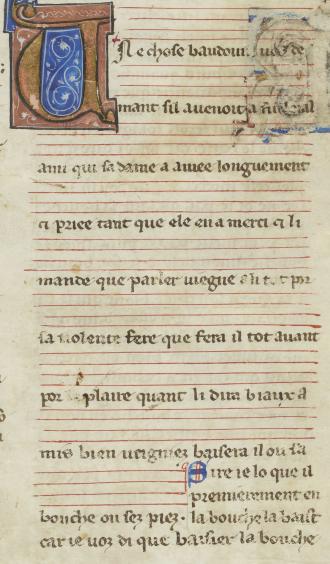 Une chose baudoin
mant sil avenoit a
ami qui sa dame a amee longuement
et priee tant que ele en a merci et li
mande que parler viegne a li
sa volente fere que fera il tot avant
por plaire quant li dira biaux a
mis bien veigniez baisera il ou sa
bouche ou sez piez.
Sire ie lo que il
premierement en
la bouche la baist
car ie voz di que baisier la bouche